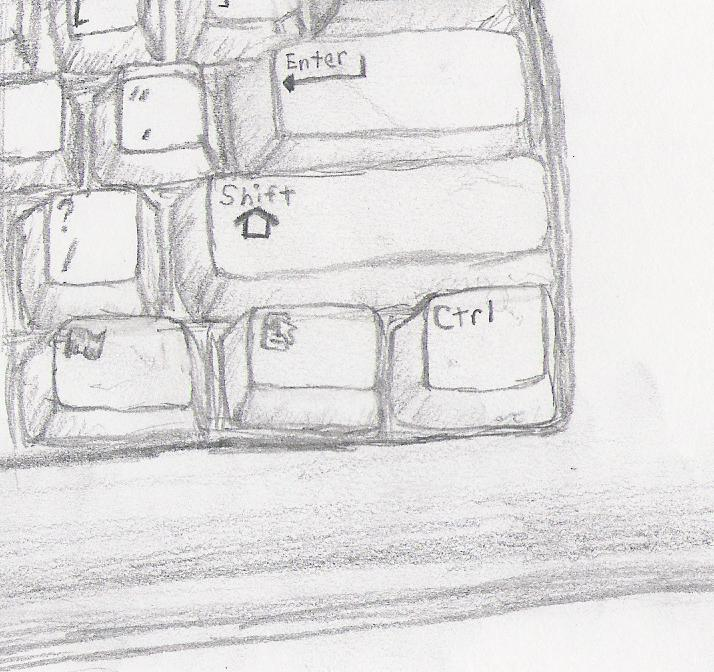 Enter
"
'
Shift
?
/
Ctrl